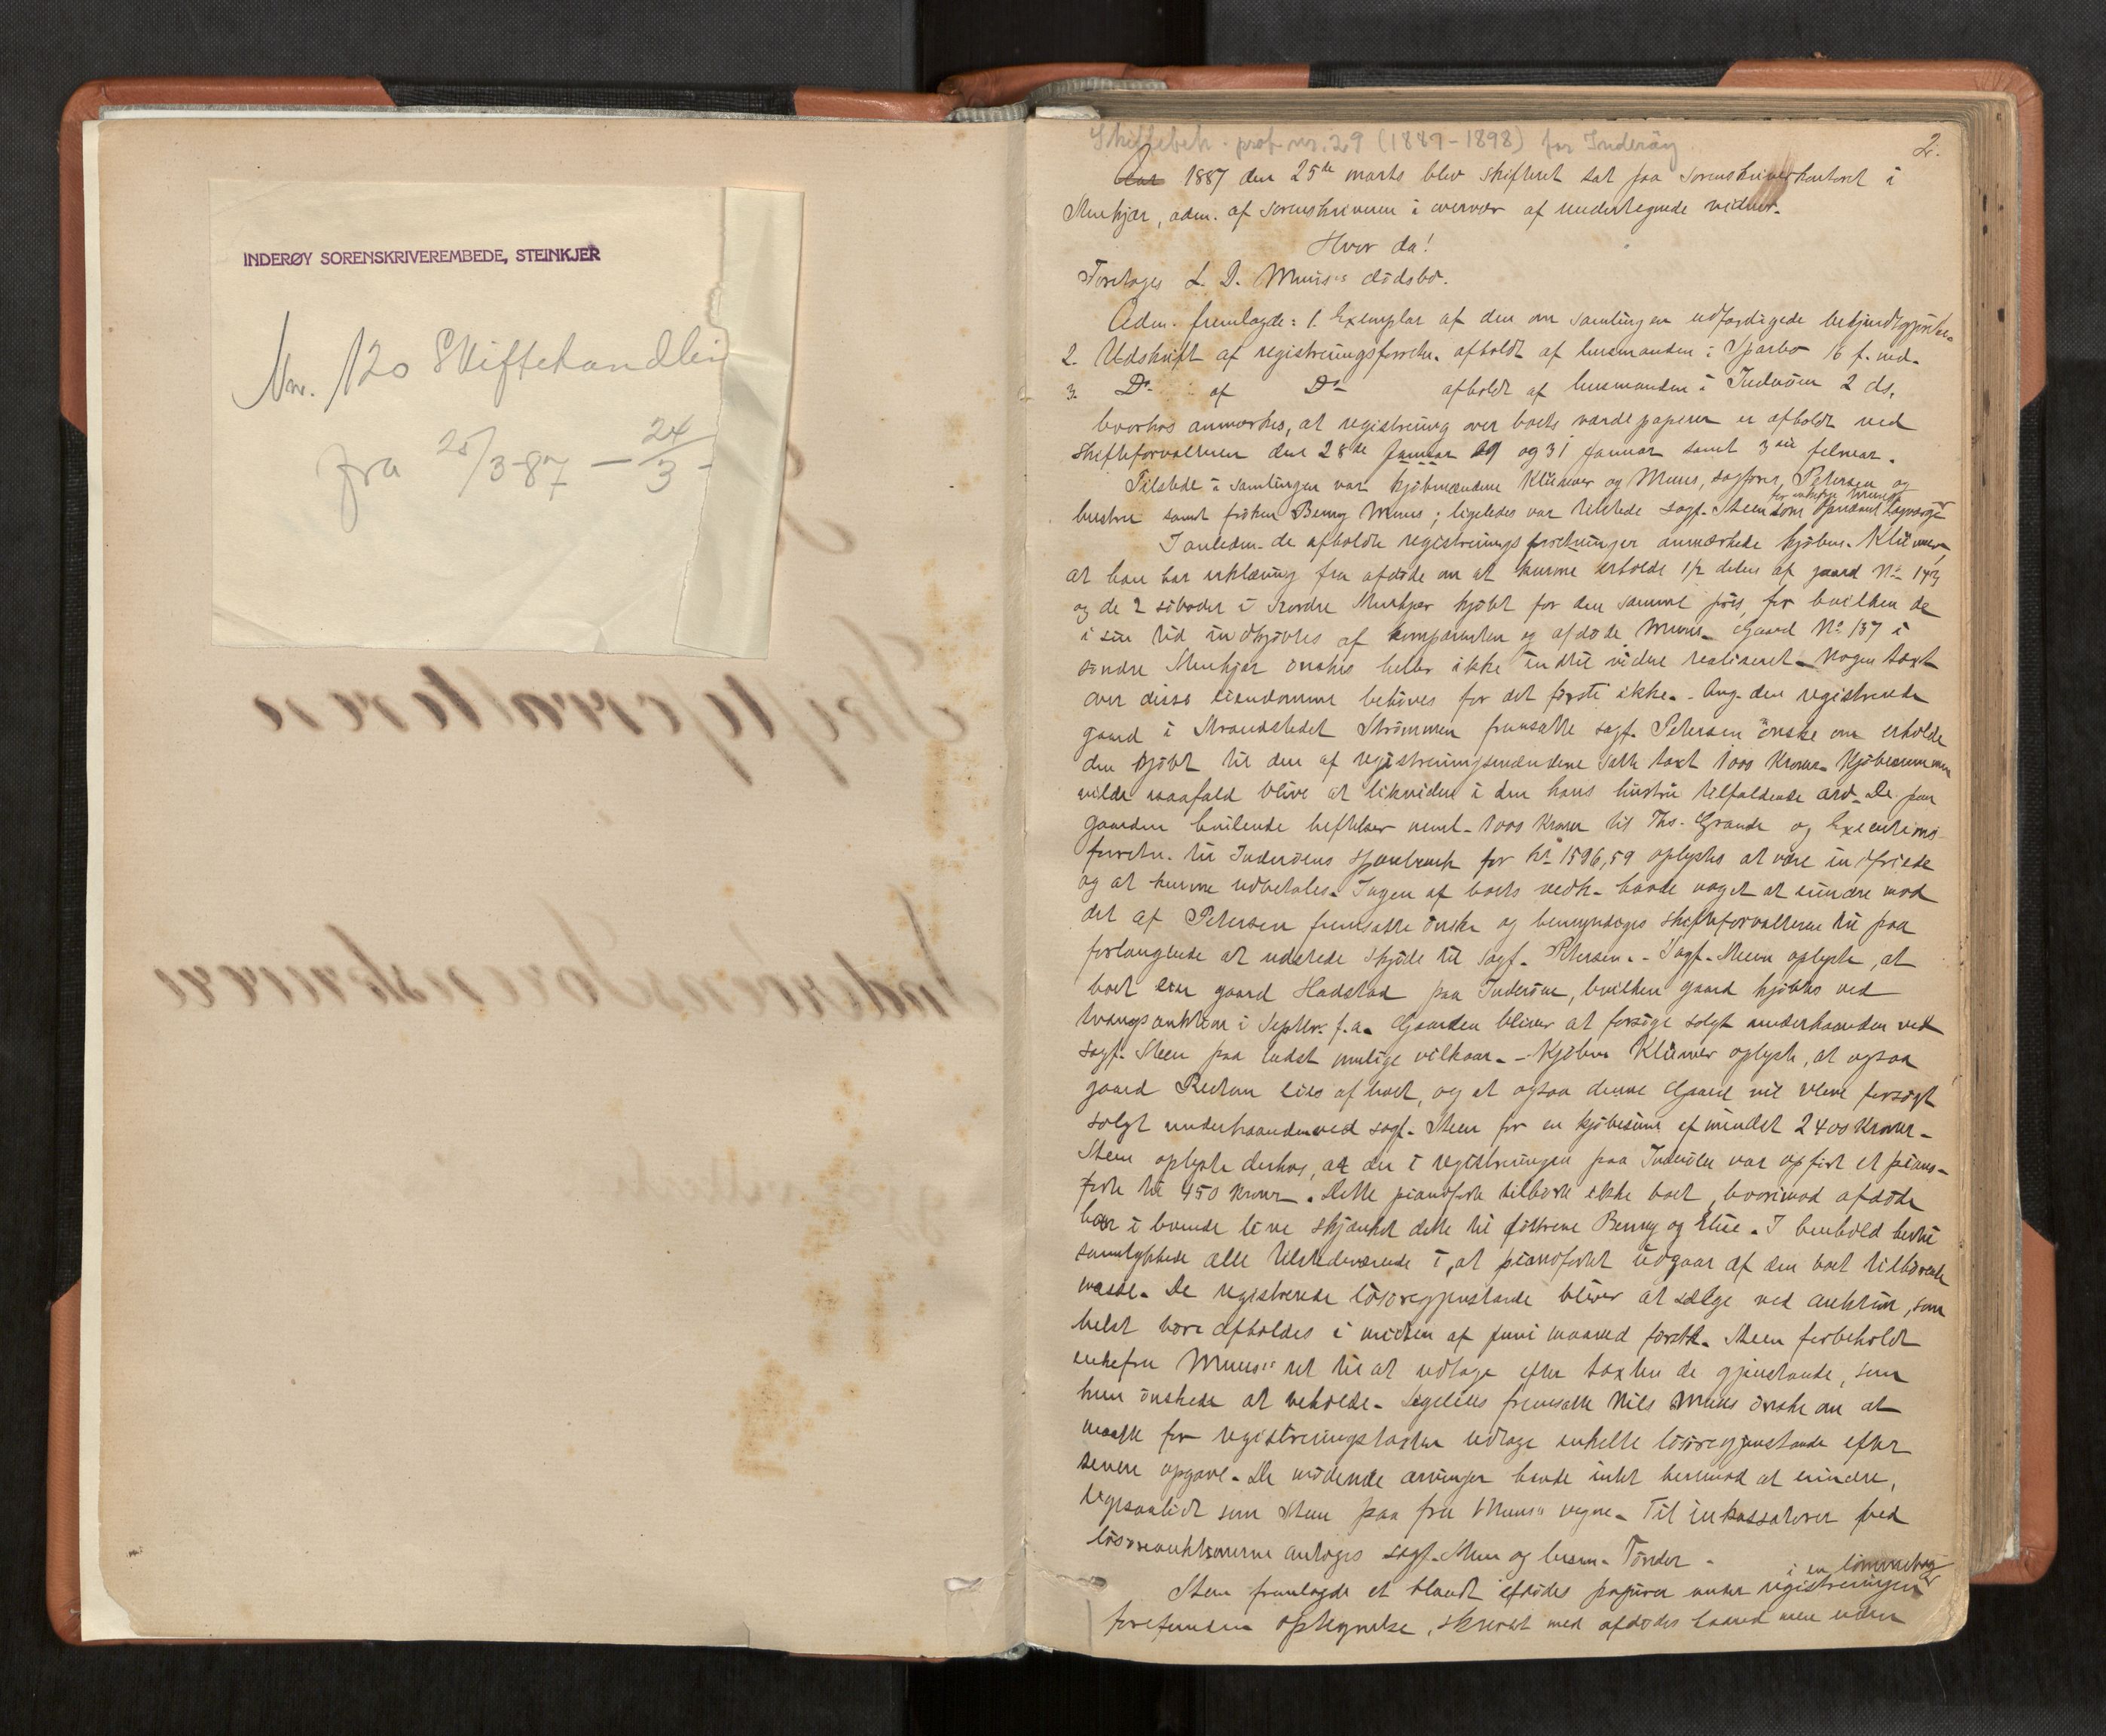 INDERØY SORENSKRIVEREMBEDE, STEINKJER
Nr. 120 Skiftehandlin
fra 25/3-87 — 24/3 -
Skiftebeh. prot. nr. 29 (1889-1898) for Inderøy
2.
Aar 1887 den 25de marts blev skifteret sat paa sorenskriverkontoret i
Stenkjær, adm. af sorenskriveren i overvær af undertegnede vidner.
Hvor da!
Foretoges L. D. Muus's dödsbo.
Adm. fremlagde: 1. Exemplar af den om samlingen udfærdigede bekjendtgjörelse
2. Udskrift af registreringsforretn. afholdt af lensmanden i Sparbo 16 f. md.
3. Do af Do afholdt af lensmanden i Inderöen 2 ds,
hvorhos anmærkes, at registrering over boets værdipapirer er afholdt ved
skifteforvalteren den 28de Januar 29 og 31 januar samt 3die februar.
Tilstede i samlingen var kjöbmændene Klüwer og Muus, sagförer Petersen og
for enkefru Muus
hustru samt fröken Benny Muus; ligeledes var tilstede sagf. Steen som opnævnt lagværge
I anledn. de afholdte registreringsforretninger anmærkede kjöbm. Klüwer,
at han har erklæring fra afdöde om at kunne erholde 1/2 delen af gaard No 143
og de 2 söboder i Nordre Stenkjær kjöbt for den samme pris, for hvilken de
i sin tid indkjöbtes af komparenten og afdöde Muus. Gaard No 137 i
söndre Stenkjær önskes heller ikke indtil videre realiseret. Nogen taxt
over disse eiendomme behöves for det förste ikke. - Ang. den registrerede
gaard i Strandstedet Strömmen fremsatte sagf. Petersen önske om erholde
den kjöbt til den af registreringsmændene satte taxt 1000 Kroner. Kjöbesummen
vilde isaafald blive at likvidere i den hans hustru tilfaldende arv. De paa
gaarden hvilende heftelser neml. 1000 Kroner til Ths. Grande og Executions-
forretn. til Inderöens sparebank for Kr 1596,59 oplystes at være indfriede
og at kunne udbetales. Ingen af boets vedk. havde noget at erindre mod
det af Petersen fremsatte önske og bemyndiges skifteforvalteren til paa
forlangende at udstede skjöde til sagf. Petersen. - Sagf. Steen oplyste, at
boet eier gaard Hadstad paa Inderöen, hvilken gaard kjöbtes ved
tvangsauktion i Septbr. f.a. Gaarden bliver at forsöge solgt underhaanden ved
sagf. Steen paa bedst mulige vilkaar. - Kjöbm Klüwer oplyste, at ogsaa
gaard eies af boet, og at ogsaa denne Gaard vil blive forsögt
solgt underhaanden ved sagf. Steen for en kjöbesum af mindst 2400 Kroner -
Steen oplyste derhos, at der i registreringen paa Inderöen var opfört et piano-
forte til 450 Kroner. Dette pianoforte tilhörte ikke boet, hvorimod afdöde
har i levende live skjænket dette til döttrene Benny og Elise. I henhold hertil
samtykkede alle tilstedeværende i, at pianofortet udgaar af den boet tilhörende
masse. De registrerede lösöregjenstande bliver at sælge ved auktion, som
helst bör afholdes i midten af juni maaned förstk. Steen forbeholdt
enkefru Muus's ret til at udtage efter taxten de gjenstande, som
hun önskede at beholde. Ligeledes fremsatte Nils Muus önske om at
maatte for registreringstaxten udtage enkelte lösöregjenstande efter
senere opgave. De mödende arvinger havde intet herimod at erindre,
ligesaalidt som Steen paa fru Muus's vegne. Til inkassatorer ved
lösöreauktionerne antoges sagf. Steen og lensm. Tönder -
i en lommebog
Steen fremlagde et blandt afdödes papirer under registreringen
forefunden optegnelse, skrevet med afdödes haand men uden